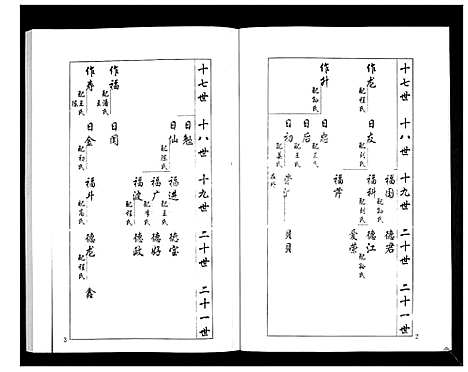 十七世 十八世 十九世 二十世 二十一世
作龙 配程氏
日友 配刘氏
福国 配孙氏
德君
福科 配刘氏
德江 配孙氏
爱荣
福芹
作升 配孙氏
日忠
日后 配王氏
日初 配姜氏
贝贝
2
十七世 十八世 十九世 二十世 二十一世
日勉
日仙 配陈氏
福进 配王氏
德宝
福广 配李氏
德好
福波 配程氏
德政
作福 配潘氏 王
日闰
作寿 配王氏 陈
日金 配初氏
福斗 配高氏
德龙 配程氏
鑫
3